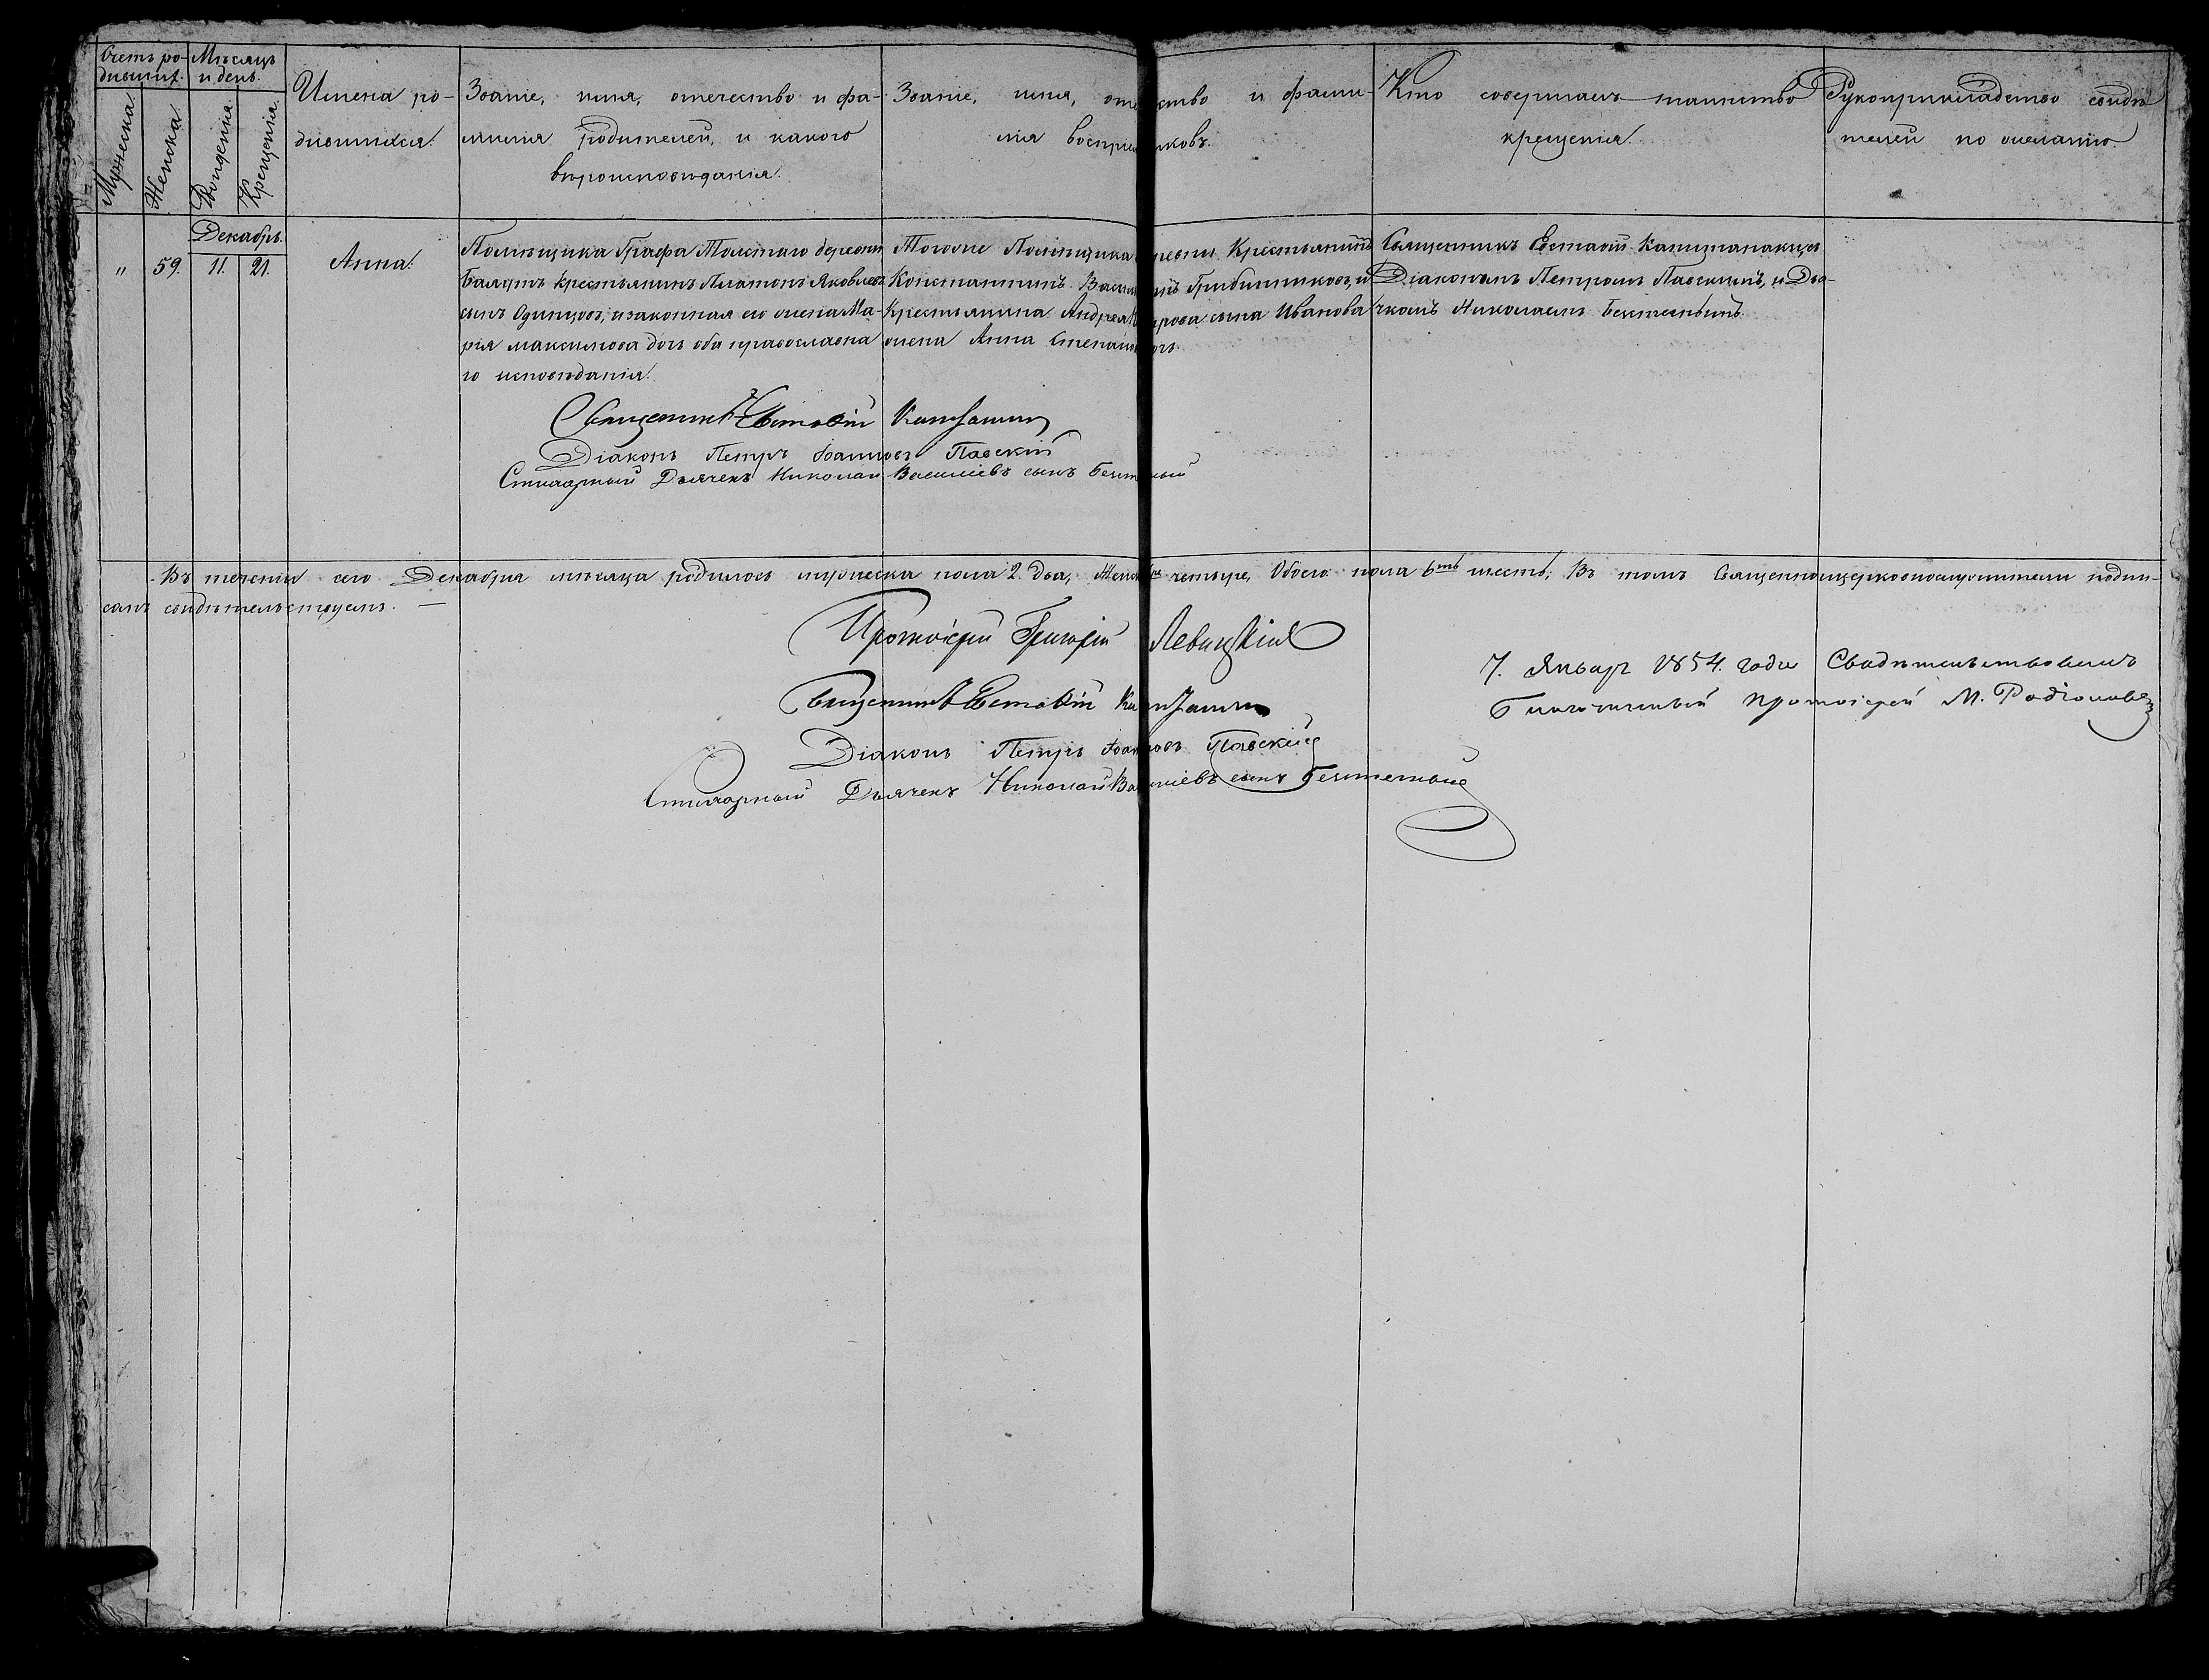 Счетъ ро- Мѣсяцъ
дившихъ. и день.
Мужеска. Женска. Рожденія. Крещенія.
Имена ро-
дившихся.
Званіе, имя, отечество и фа-
милія родителей, и какого
вѣроисповѣданія.
Званіе, имя, оте ство и фами-
лія воспріе никовъ.
Кто совершалъ таинство
крещенія.
Рукоприкладство свидѣ
телей по желанію.
Декабрь.
" 59. 11. 21.
Анна.
Помѣщика Графа Толстаго деревни
крестьянинъ Платонъ Яковлевъ
сынъ Одинцовъ, изаконная его жена Ма-
рія Максимова дочь оба православна
го исповѣданія.
Тогоже Помѣщика ревни Крестьянинъ
Константинъ
Крестьянина Андрея рова сына Иванова
жена Анна Степан очь.
Священникъ Евстафій
Діакономъ Петромъ Павскимъ, и Дья-
чкомъ Николаемъ
Священникъ Евстафій
Діаконъ Петръ Іоанновъ Павскій
Стихарный Дьячекъ Николай Василіевъ сынъ
Въ теченіи сего Декабря мѣсяца родилось мужеска пола 2. два, Женска четыре, Обоего пола 6ть шесть; Въ томъ Священноцерковнослужители подпи-
самъ свидѣтельствуемъ. —
Протоіерей Григорій Левицкій
Священникъ Евстафій
Діаконъ Петръ Іоанновъ Павскій
Стихарный Дьячекъ Николай Василіевъ сынъ
7. Январ 1854. года Свидѣтельствовалъ
Благочинный протоіерей М. Родіоновъ